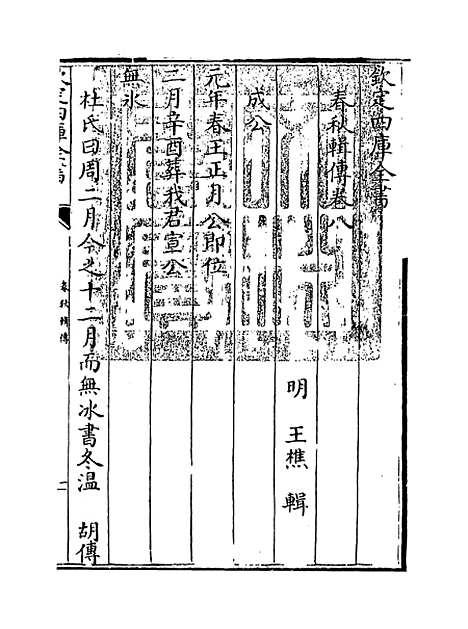 欽定四庫全書
春秋輯傳卷八
明 王樵 輯
成公
元年春王正月公即位
二月辛酉葬我君宣公
無冰
杜氏曰周二月今之十二月而無冰書冬溫 胡傳
欽定四庫全書
春秋輯傳